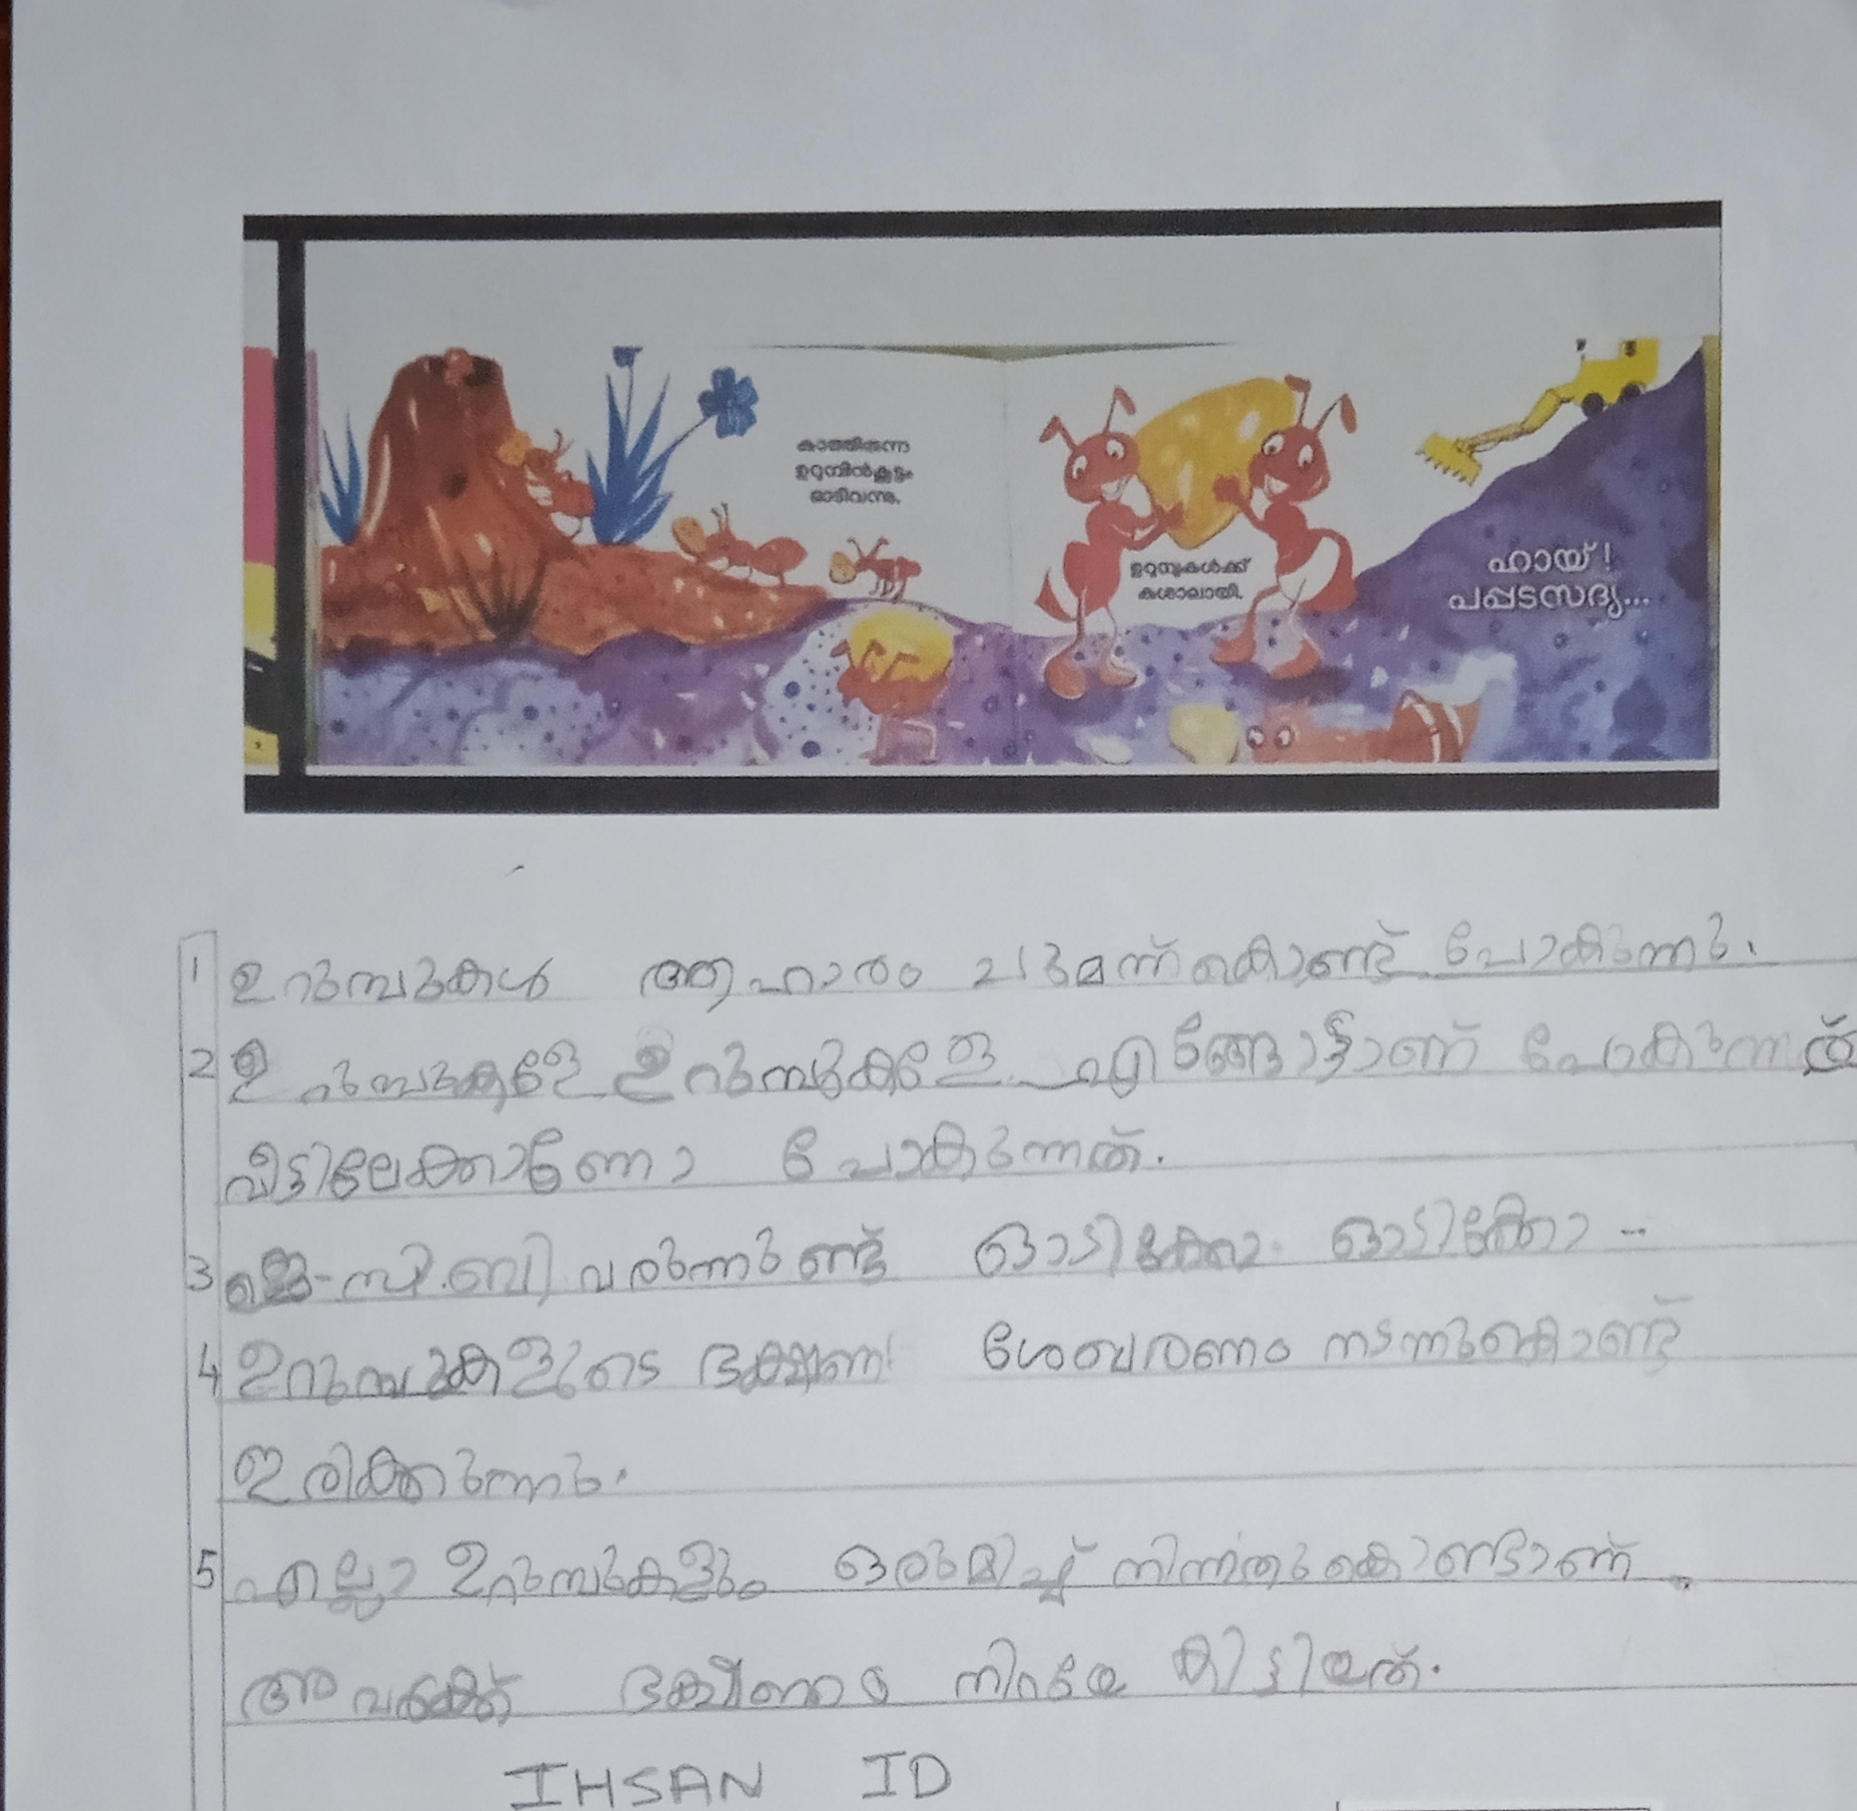 കാത്തിരുന്ന
ഉറുമ്പിൻകൂട്ടം
ഓടിവന്നു.
ഉറുമ്പുകൾക്ക്
കുശാലായി.
ഹായ് !
പപ്പടസദ്യ...
1 ഉറുമ്പുകൾ ആഹാരം ചുമന്ന്കൊണ്ട് പോകുന്നു.
2 ഉറുമ്പുകളേ ഉറുമ്പുകളേ എങ്ങോട്ടാണ് പോകുന്നത്
വീട്ടിലേക്കാണോ പോകുന്നത്.
3 ജെ-സി.ബി വരുന്നുണ്ട് ഓടിക്കോ ഓടിക്കോ --
4 ഉറുമ്പുകളുടെ ഭക്ഷണ ശേഖരണം നടന്നുകൊണ്ട്
ഇരിക്കുന്നു.
5 എല്ലാ ഉറുമ്പുകളും ഒരുമിച്ച് നിന്നതുകൊണ്ടാണ്
അവർക്ക് ഭക്ഷണം നിറയേ കിട്ടിയത്.
IHSAN ID